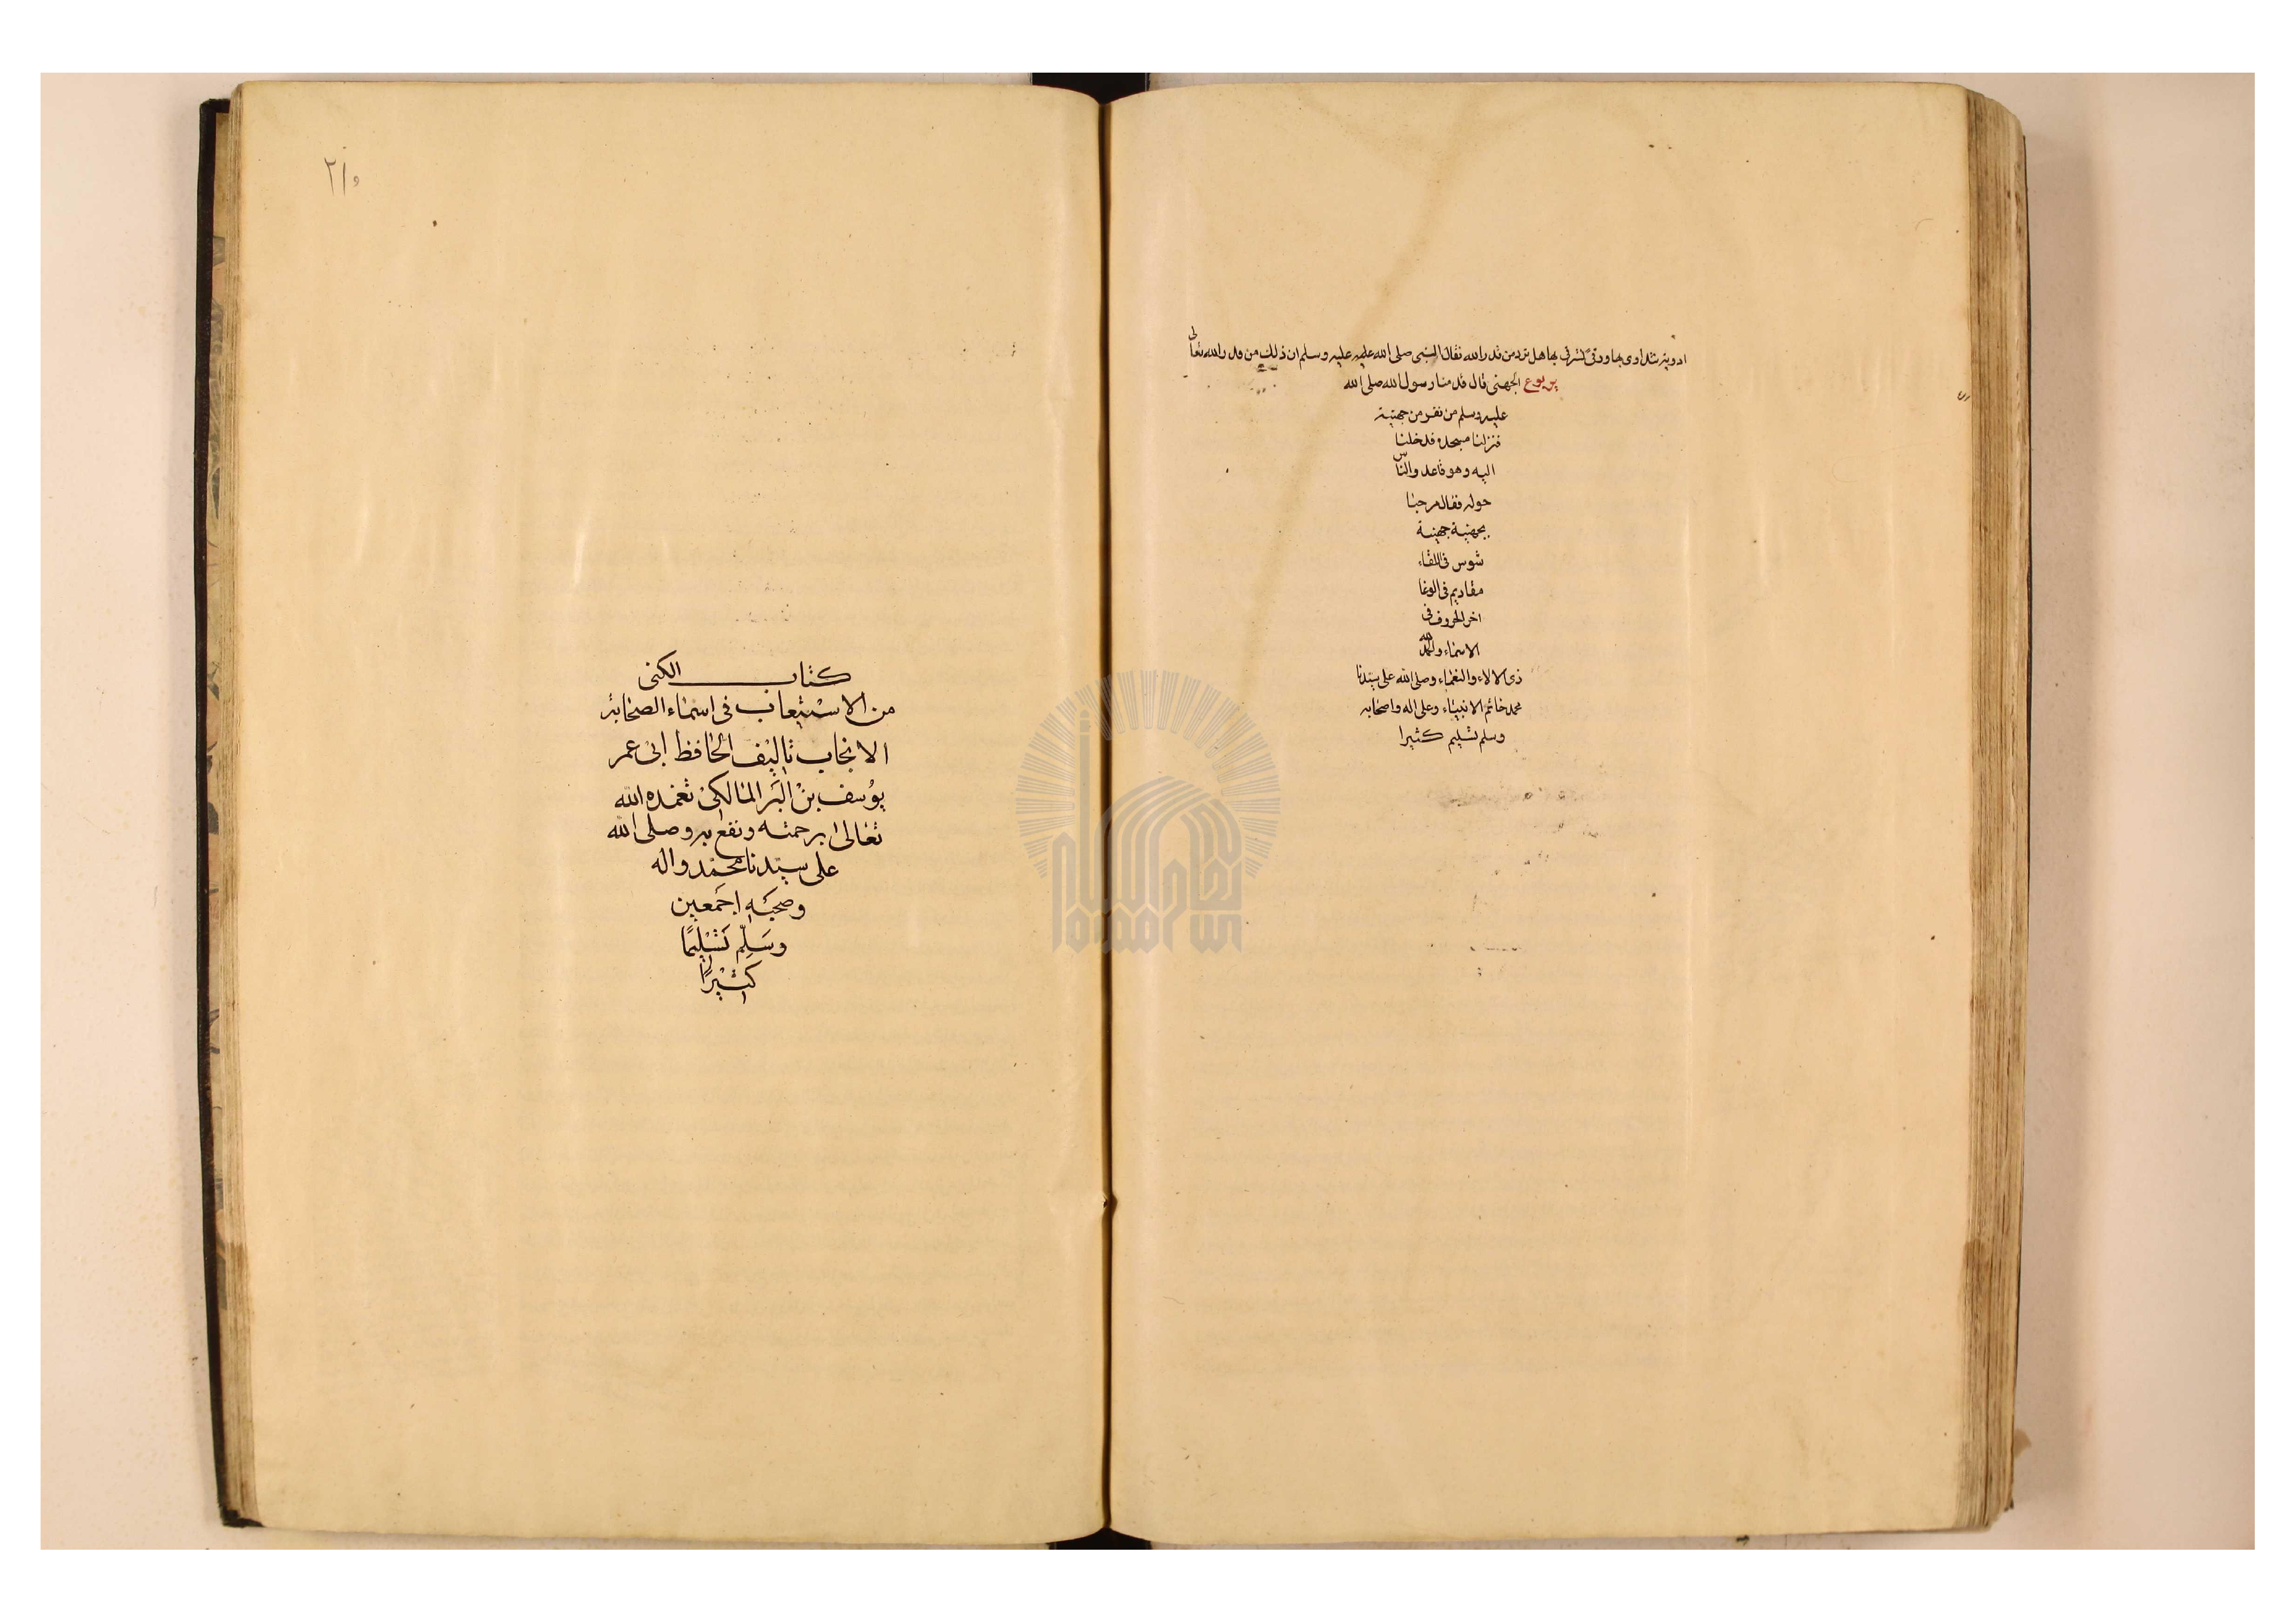 ادوية نتداوى بها ورقى نسترقى بها هل ترد من قدر الله فقال النبى صلى الله عليه عليه وسلم ان ذلك من قدر الله تعالى
يربوع الجهنى قال قدمنا رسول الله صلى الله
عليه وسلم من نفر من جهنية
فنزلنا مسجده فدخلنا
اليه وهو قاعد والناس
حوله فقال مرحبا
بجهنية جهنية
شوس فى اللقاء
مقاديم فى الوغا
اخر الحروف فى
الاسماء ولله الحمد
ذى الالاء والنعماء وصلى الله على سيدنا
محمد خاتم الانبياء وعلى اله واصحابه
وسلم تسليم كثيرا
٢١٥
كتاب الكنى
من الاستيعاب فى اسماء الصحابة
الانجاب تاليف الحافظ ابى عمر
يوسف بن البر المالكى تغمده الله
تعالى برحمته ونفع به وصلى الله
على سيدنا محمد واله
وصحبه اجمعين
وسلم تسليما
كثيرا